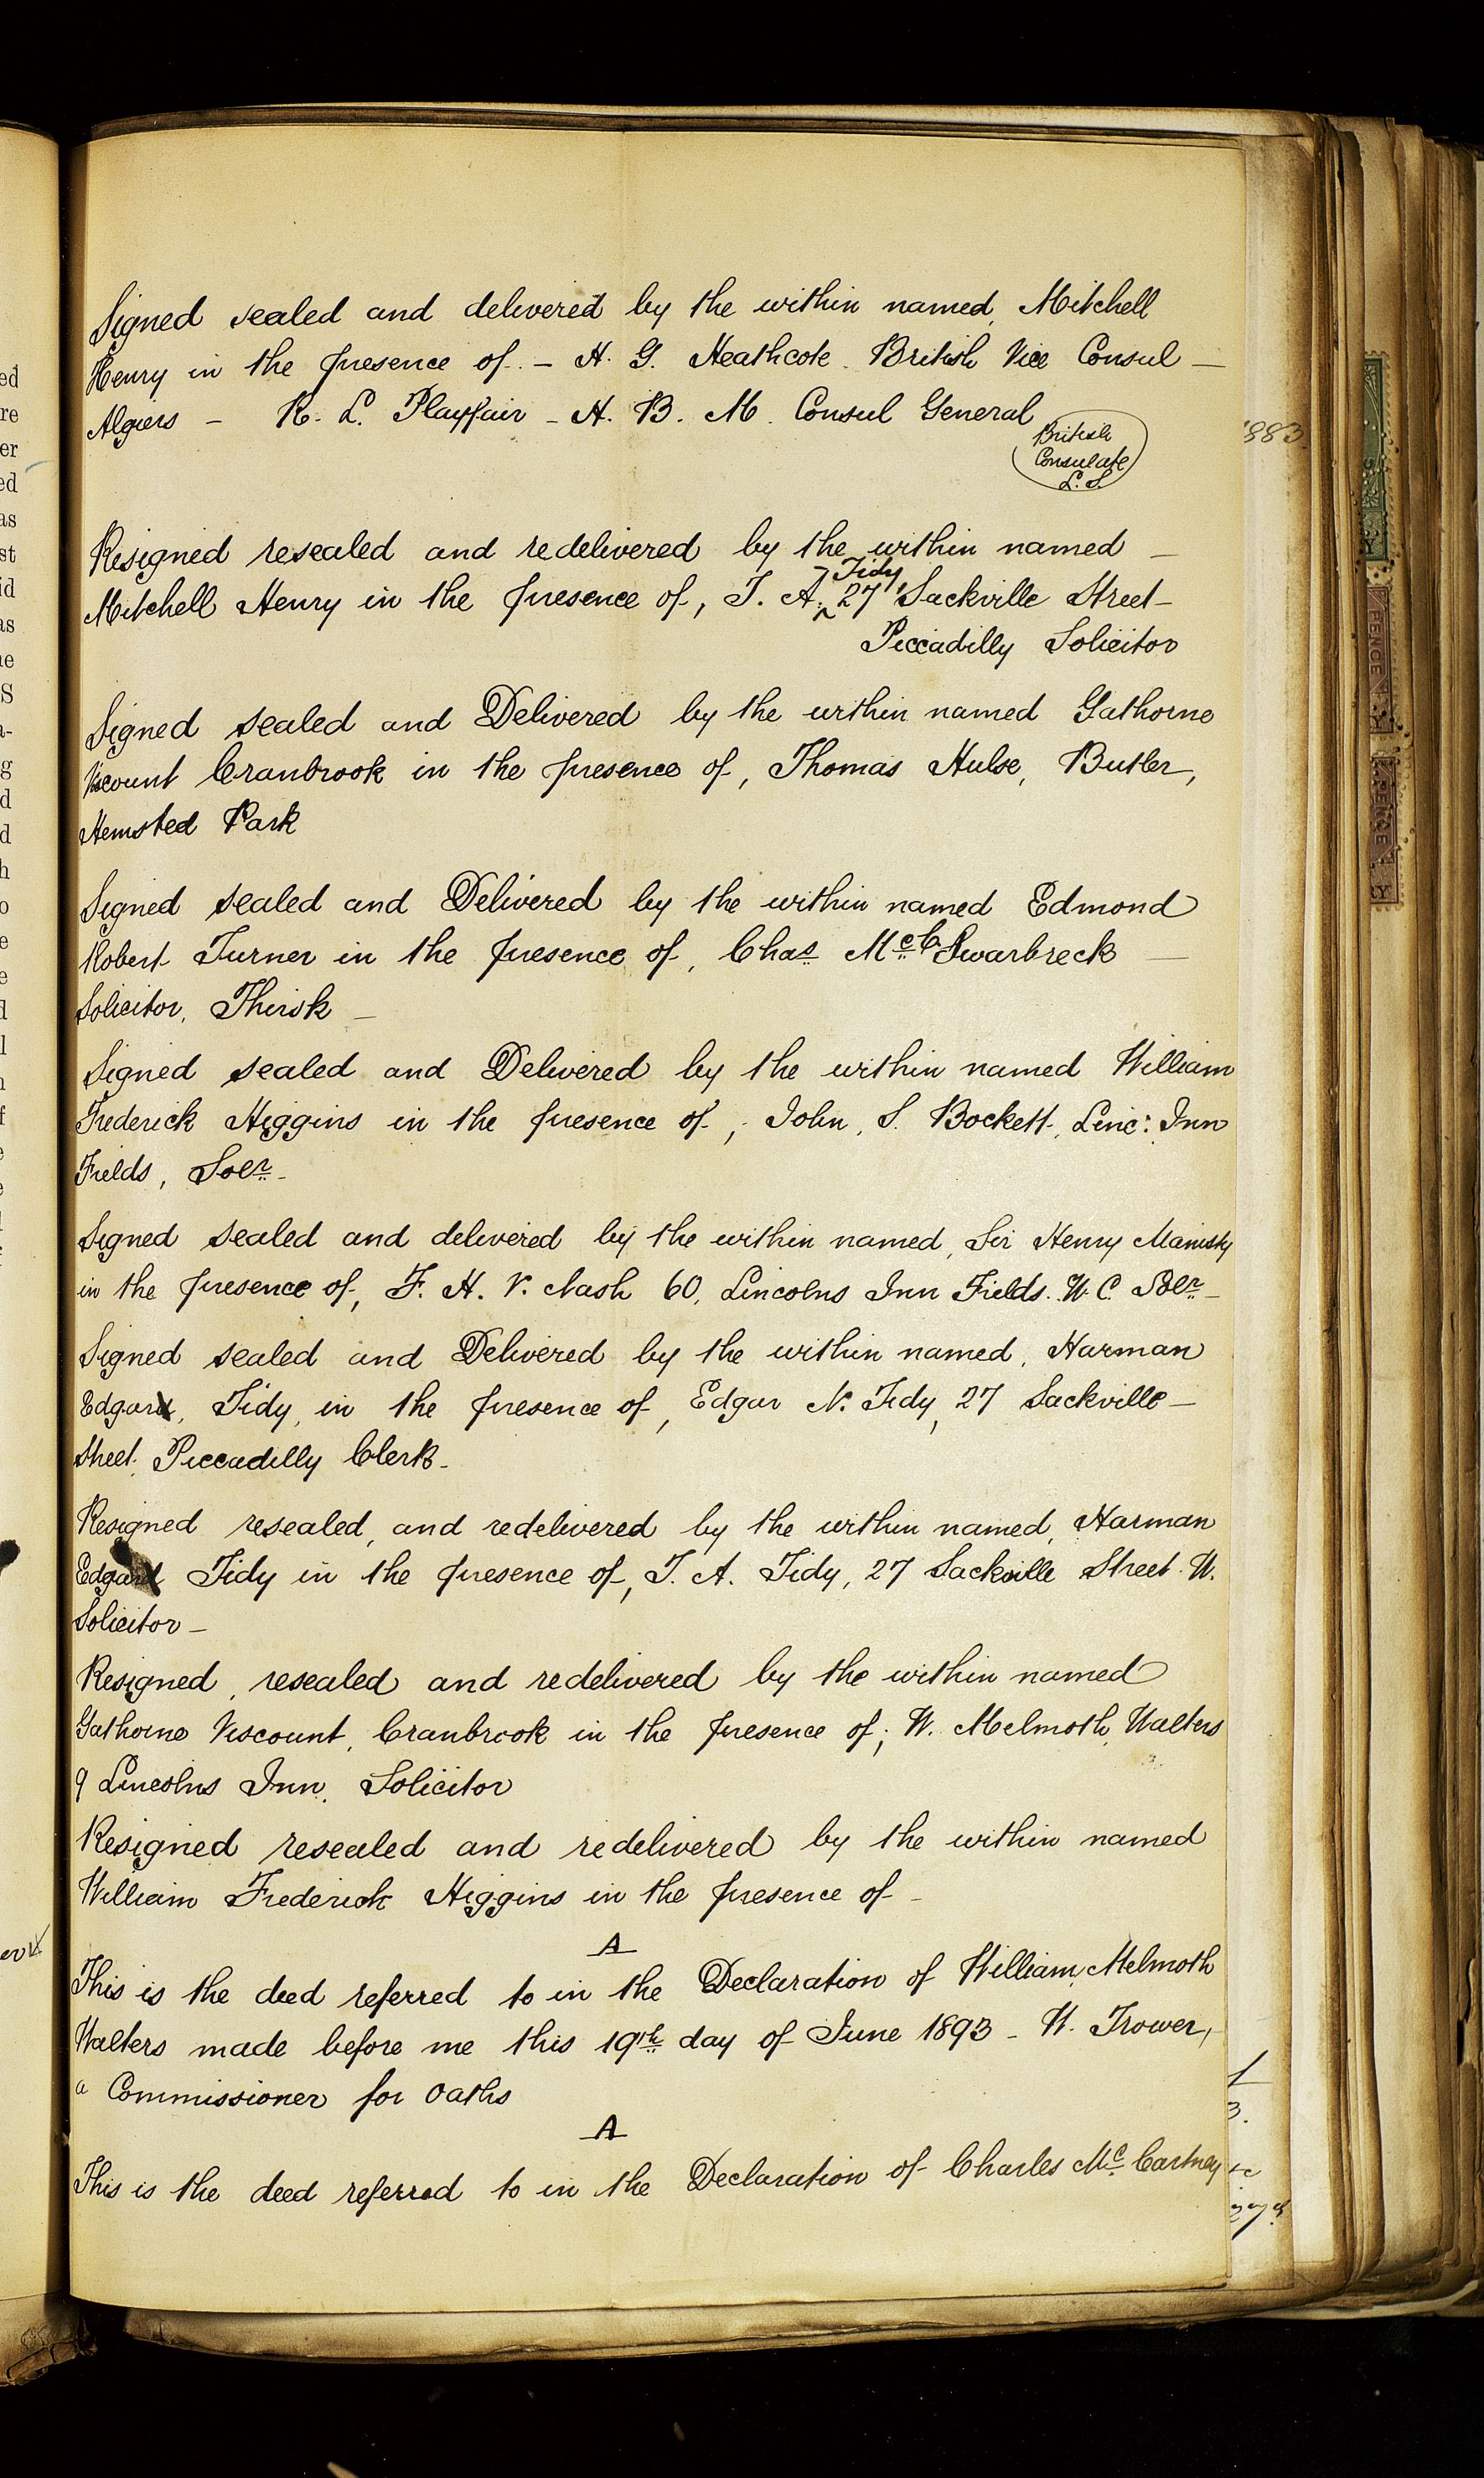 Signed sealed and delivered by the within named, Mitchell
Henry in the presence of - H. G. Heathcote British Vice Consul -
Algiers - R. L. Playfair - H. B. M. Consul General
British
Consulate
L. S.
Resigned resealed and redelivered by the within named -
Mitchell Henry in the presence of, T. A. Tidy 27 Sackville Street -
Piccadilly Solicitor
Signed sealed and Delivered by the within named Gathorne
Viscount Cranbrook in the presence of, Thomas Hulse, Butler,
Hemsted Park
Signed sealed and Delivered by the within named Edmond
Robert Turner in the presence of, Chas McC Swarbreck -
Solicitor, Thirsk -
Signed sealed and Delivered by the within named William
Frederick Higgins in the presence of, John, S. Bockett, Linc: Inn
Fields, Solr -
Signed sealed and delivered by the within named, Sir Henry Manisty
in the presence of, F. H. V. Nash 60, Lincolns Inn Fields. W. C. Solr -
Signed sealed and Delivered by the within named, Harman
Edgar, Tidy, in the presence of, Edgar N. Tidy, 27 Sackville -
Street, Piccadilly Clerk -
Resigned resealed, and redelivered by the within named, Harman
Edgar Tidy in the presence of, T. A. Tidy, 27 Sackville Street W.
Solicitor -
Resigned, resealed and redelivered by the within named
Gathorne Viscount, Cranbrook in the presence of; W. Melmoth, Walters
9 Lincolns Inn, Solicitor
Resigned resealed and redelivered by the within named
William Frederick Higgins in the presence of -
A
This is the deed referred to in the Declaration of William Melmoth
Walters made before me this 19th day of June 1893 - W. Trower,
a Commissioner for Oaths
A
This is the deed referred to in the Declaration of Charles Mc Cartney